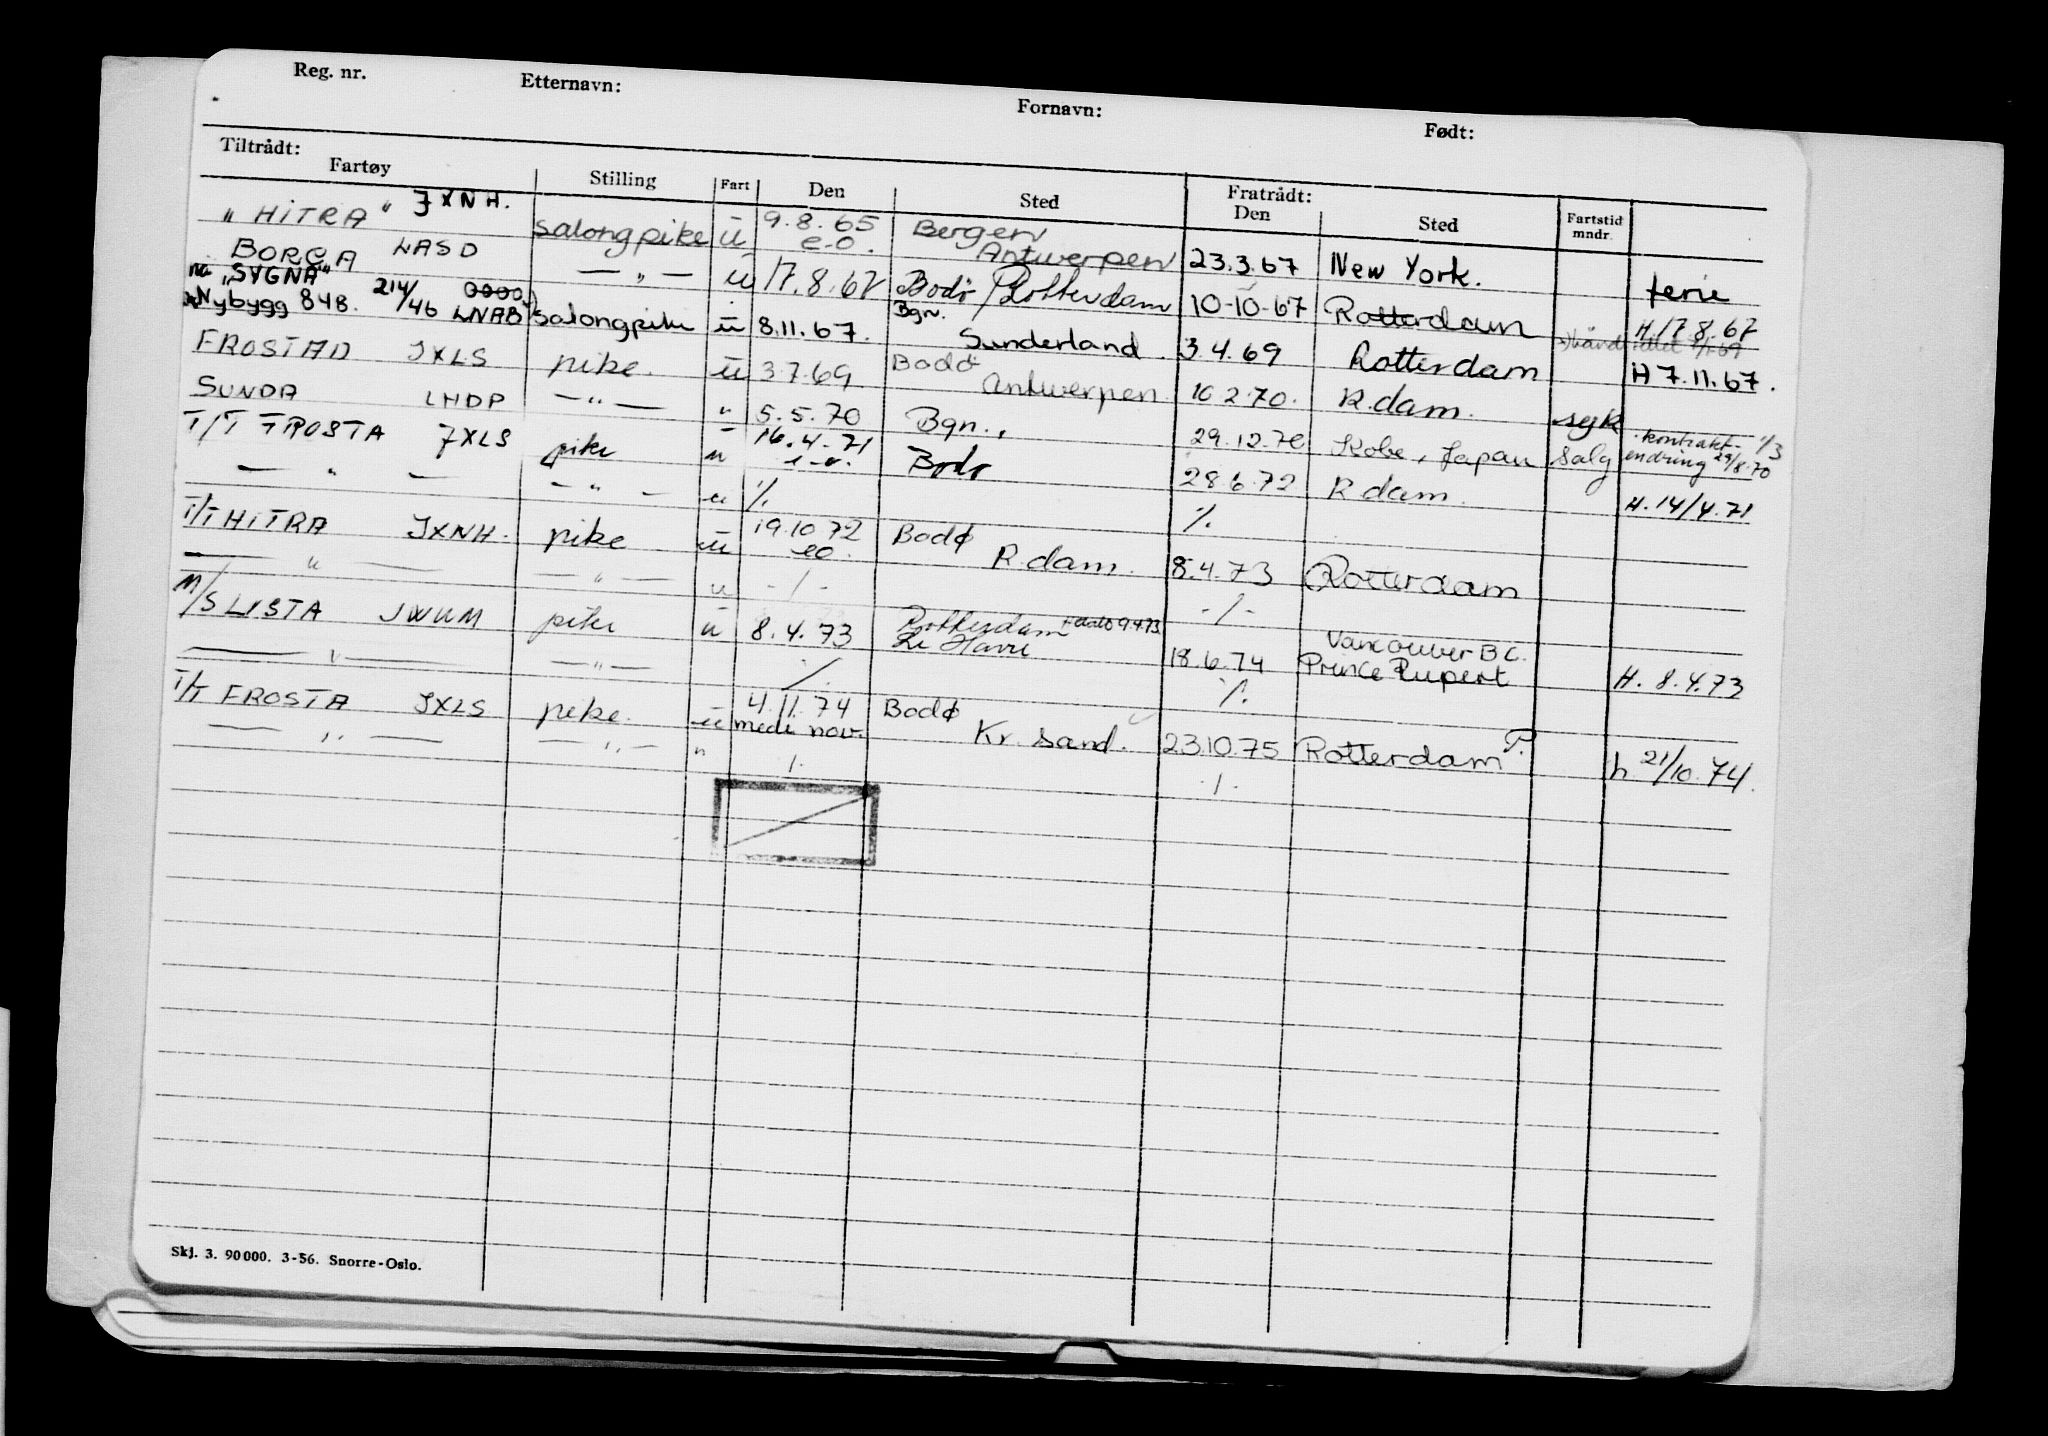 Reg. nr. Etternavn: Fornavn: Født:
Tiltrådt: Fratrådt:
Fartøy Stilling Fart Den Sted Den Sted Fartstid mndr.
"HITRA" JXNH. salongpike ū 9.8.65 e-o. Bergen Antwerpen 23.3.67 New York. ferie
BORGA LASD — " — ū 17.8.67 Bodø / Rotterdam 10-10-67 Rotterdam H. 17.8.67
nå "SYGNA"
Nybygg 848. 214/46 LNAB salongpike ū 8.11.67. Bgn. Sunderland. 3.4.69 Rotterdam H 7.11.67.
FROSTAD JXLS pike. ū 3.7.69 Bodø Antwerpen. 16.2.70. R.dam. syk
SUNDA LHDP — " — " 5.5.70 Bgn., 29.12.70 Kobe, Japan salg kontrakt- endring 29/8.70 1/3
T/T FROSTA JXLS pike ū 16.4.71 e-o. Bodø 28.6.72 R dam. H. 14/4.71
— " — — " — ū ·/. ·/.
T/T HITRA JXNH. pike ū 19.10.72 eo. Bodø R.dam. 8.4.73 Rotterdam
— " — — " — ū -/- -/-
M/S LISTA JWUM pike ū 8.4.73 Rotterdam 9.4.73 Le Havre 18.6.74 Vancouver B C. Prince Rupert H. 8.4.73
— " — — " — ·/. ·/.
T/T FROSTA JXLS pike. ū 4.11.74 medi nov. Bodø Kr. sand. 23.10.75 Rotterdam P. h. 21/10.74.
— " — — " — " ·/. ·/.
Skj. 3. 90 000. 3-56. Snorre-Oslo.